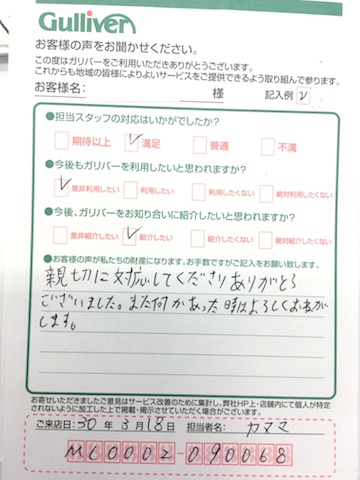 Gulliver
お客様の声をお聞かせください。
この度はガリバーをご利用いただきありがとうございます。
これからも地域の皆様によりよいサービスをご提供できるよう取り組んで参ります。
お客様名: 様 記入例 レ
●担当スタッフの対応はいかがでしたか?
期待以上 レ 満足 普通 不満
●今後もガリバーを利用したいと思われますか?
レ 是非利用したい 利用したい 利用したくない 絶対利用したくない
●今後、ガリバーをお知り合いに紹介したいと思われますか?
是非紹介したい レ 紹介したい 紹介したくない 絶対紹介したくない
●お客様の声が私たちの財産になります。お手数ですがご記入をお願い致します。
親切に対応してくださりありがとう
ございました。また何かあった時はよろしくおねがい
します。
お寄せいただきましたご意見はサービス改善のために集計し、弊社HP上・店舗内にて個人が特定
されないように加工した上で掲載・掲示させていただく場合がございます。
ご来店日: 30 年 3 月 18 日 担当者名: カママ
MC0002-090068